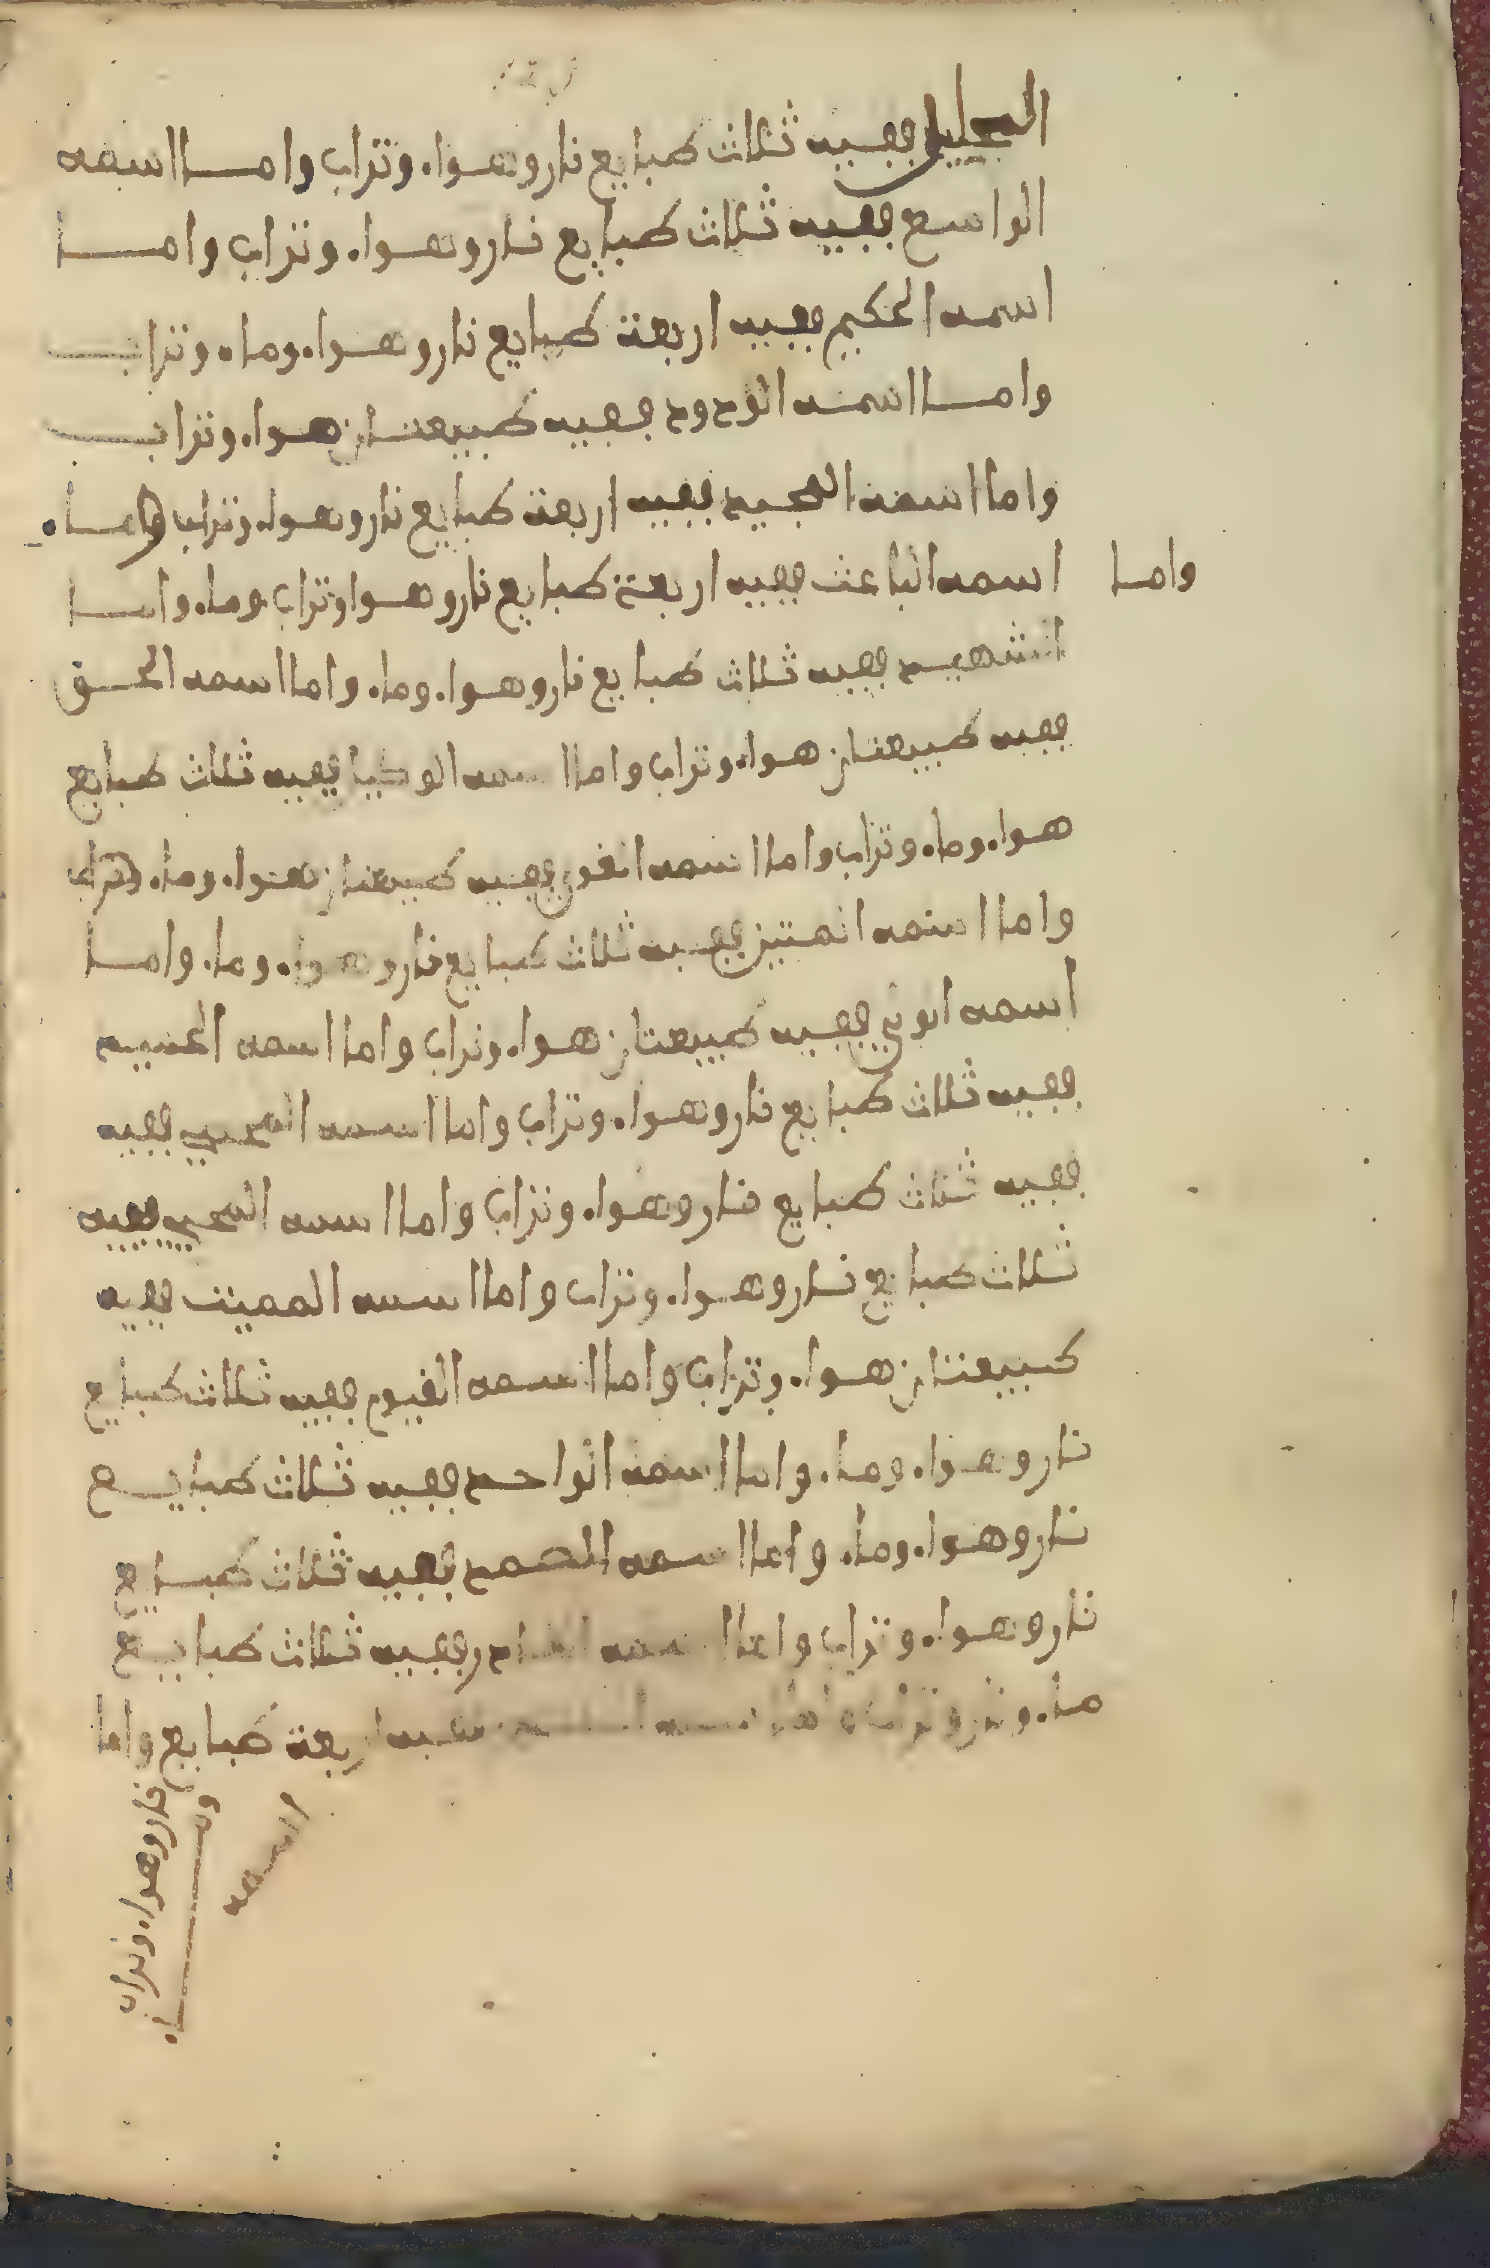 الجليل ففيه ثلاث طبايع نار وهواء وتراب واما اسمه
الواسع ففيه ثلاث طبايع نار وهواء وتراب واما
اسمه الحكيم ففيه اربعة طبايع نار وهواء وماء وتراب
واما اسمه الودود ففيه طبيعتان هواء وتراب
واما اسمه المجيد ففيه اربعة طبايع نار وهواء وتراب وماء
واما اسمه الباعث ففيه اربعة طبايع نار وهوا وتراب وماء واما
الشهيد ففيه ثلاث طبايع نار وهواء وماء واما اسمه الحق
ففيه طبيعتان هواء وتراب واما اسمه الوكيل ففيه ثلاث طبايع
هواء وماء وتراب واما اسمه القوي ففيه طبيعتان هواء وماء وتراب
واما اسمه المتين ففيه ثلاث طبايع نار وهواء وماء واما
اسمه الولي ففيه طبيعتان هواء وتراب واما اسمه الحميد
ففيه ثلاث طبايع نار وهواء وتراب واما اسمه المحيي ففيه
ففيه ثلاث طبايع نار وهواء وتراب واما اسمه المحيي ففيه
ثلاث طبايع نار وهواء وتراب واما اسمه المميت ففيه
طبيعتان هواء وتراب واما اسمه القيوم ففيه ثلاث طبايع
نار وهواء وماء واما اسمه الواحد ففيه ثلاث طبايع
نار وهواء وماء واما اسمه الصمد ففيه ثلاث طبايع
نار وهواء وتراب واما اسمه ففيه ثلاث طبايع
ماء ففيه اربعة طبايع واما
اسمه
نار وهواء وتراب
وماء